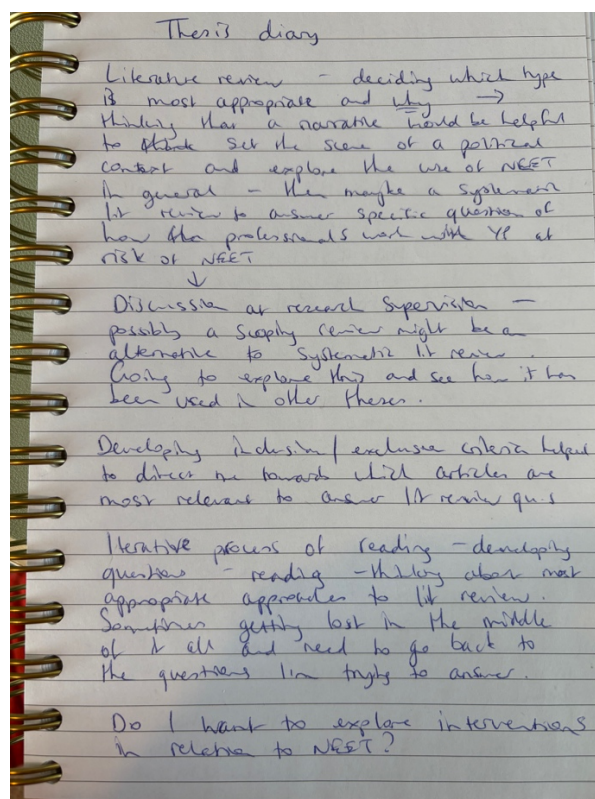 Thesis diary
Literature review - deciding which type
is most appropriate and why →
thinking that a narrative would be helpful
to set the scene of a political
context and explore the use of NEET
in general - then maybe a systematic
lit review to answer specific question of
how professionals work with YP at
risk of NEET
↓
Discussion at research supervision -
possibly a scoping review might be an
alternative to systematic lit review.
Going to explore this and see how it has
been used in other theses.
Developing inclusion/exclusion criteria helped
to direct me towards which articles are
most relevant to answer lit review qu.s
Iterative process of reading - developing
questions - reading - thinking about most
appropriate approaches to lit review.
Sometimes getting lost in the middle
of it all and need to go back to
the questions I'm trying to answer.
Do I want to explore interventions
in relation to NEET?